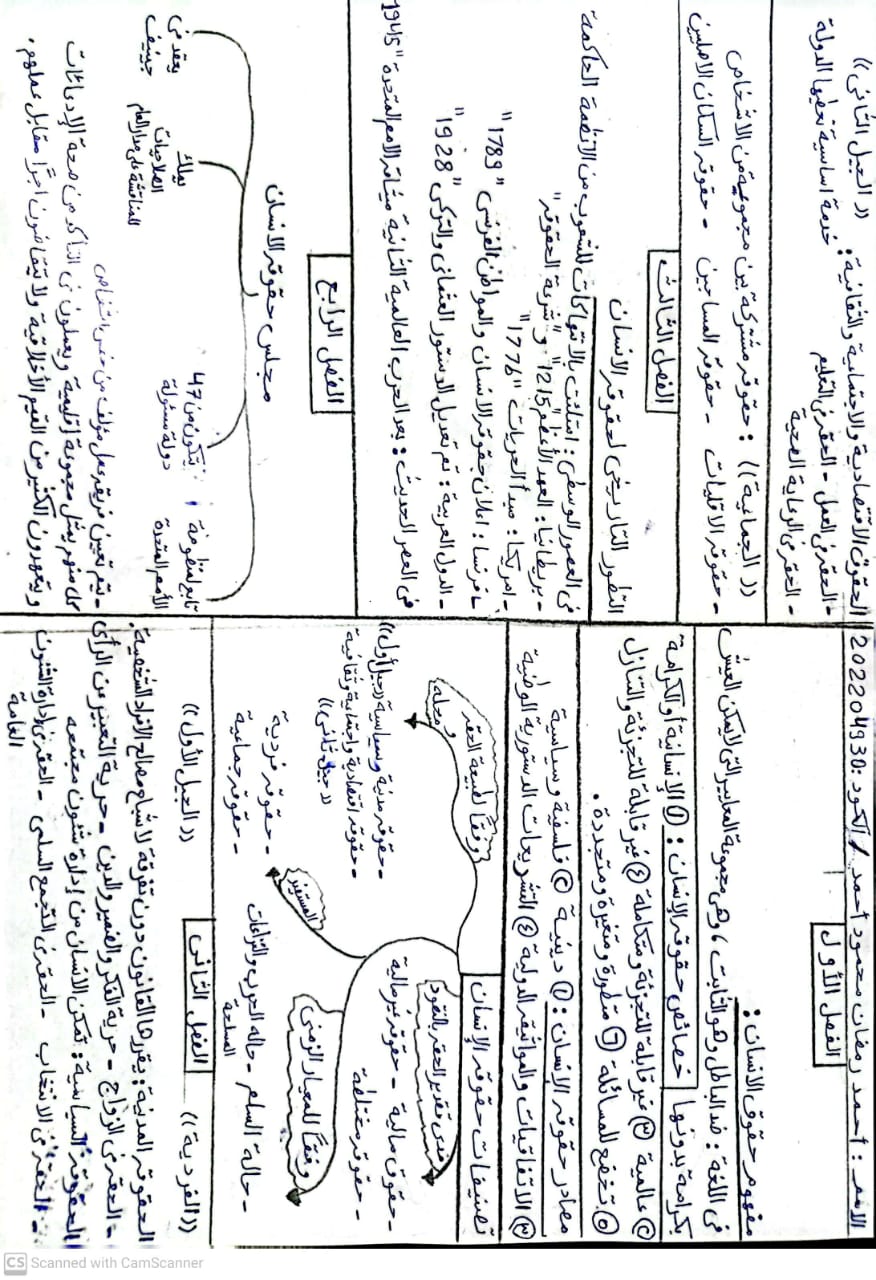 الاسم : أحمد رمضان محمود أحمد / الكود : 202204930
الفصل الأول
مفهوم حقوق الانسان :
فى اللغة : ضد الباطل وهو الثابت ، وهى مجموعة المعايير التى لا يمكن العيش
بكرامة بدونها
خصائص حقوق الإنسان : ① الإنسانية أو الكرامة
② عالمية ③ غير قابلة للتجزئة ومتكاملة ④ غير قابلة للتجزئة والتنازل
⑤ تخضع للمسائلة ⑥ متطورة ومتغيرة ومتجددة .
مصادر حقوق الإنسان : ① دينية ② فلسفية وسياسية
③ الاتفاقيات والمواثيق الدولية ④ التشريعات الدستورية الوطنية
تصنيفات حقوق الإنسان
مدى تقدير الحق بالنقود
- حقوق مالية - حقوق غير مالية
- حقوق مختلطة
وفقاً لطبيعة الحق
و
محله
- حقوق مدنية وسياسية ((جيل أول))
- حقوق اقتصادية واجتماعية وثقافية
((جيل ثانى))
وفقاً للمعيار الزمنى
- حالة السلم - حاله الحرب والنزاعات
المسلحة
المستفيد
- حقوق فردية
- حقوق جماعية
الفصل الثانى
((الفردية))
((الجيل الأول))
الحقوق المدنية : يقررها القانون دون تفرقة لاشباع مصالح الافراد الشخصية .
- الحق فى الزواج - حرية الفكر والضمير والدين - حرية التعبير عن الرأى
الحقوق السياسية : تمكن الانسان من إدارة شئون مجتمعه
- الحق فى الانتخاب - الحق فى التجمع السلمى - الحق فى إدارة الشئون
العامة
الحقوق الاقتصادية والاجتماعية والثقافية : ((الجيل الثانى))
- الحق فى العمل - الحق فى التعليم خدمة اساسية تعطيها الدولة
- الحق فى الرعاية الصحية
((الجماعية)) : حقوق مشتركة بين مجموعة من الاشخاص
- حقوق الاقليات - حقوق المساجين - حقوق السكان الاصليين
الفصل الثالث
التطور التاريخى لحقوق الانسان
فى العصور الوسطى : امتلئت بالانتهاكات للشعوب من الانظمة الحاكمة
- بريطانيا : العهد الأعظم "1215" و "شرعة الحقوق"
- امريكا : مبدأ الحريات "1776"
- فرنسا : اعلان حقوق الانسان والمواطن الفرنسى "1789"
- الدول العربية : تم تعديل الدستور العثمانى والتركى "1928"
فى العصر الحديث : بعد الحرب العالمية الثانية ميثاق الامم المتحدة "1945
الفصل الرابع
مجلس حقوق الانسان
تابع لمنظومة
الأمم المتحدة
يتكون من 47
دولة مسئولة
يملك
الصلاحيات
للمناقشة على مدار العام
يعقد فى
جينيف
- يتم تعيين فريق عمل مؤلف من خمس اشخاص
كل منهم يمثل مجموعة إقليمية ويعملون فى التأكد من صحة الإدعائات
ويتعهدون الكثير من القيم الأخلاقية ولا يتقاضون اجرًا مقابل عملهم .
CS Scanned with CamScanner